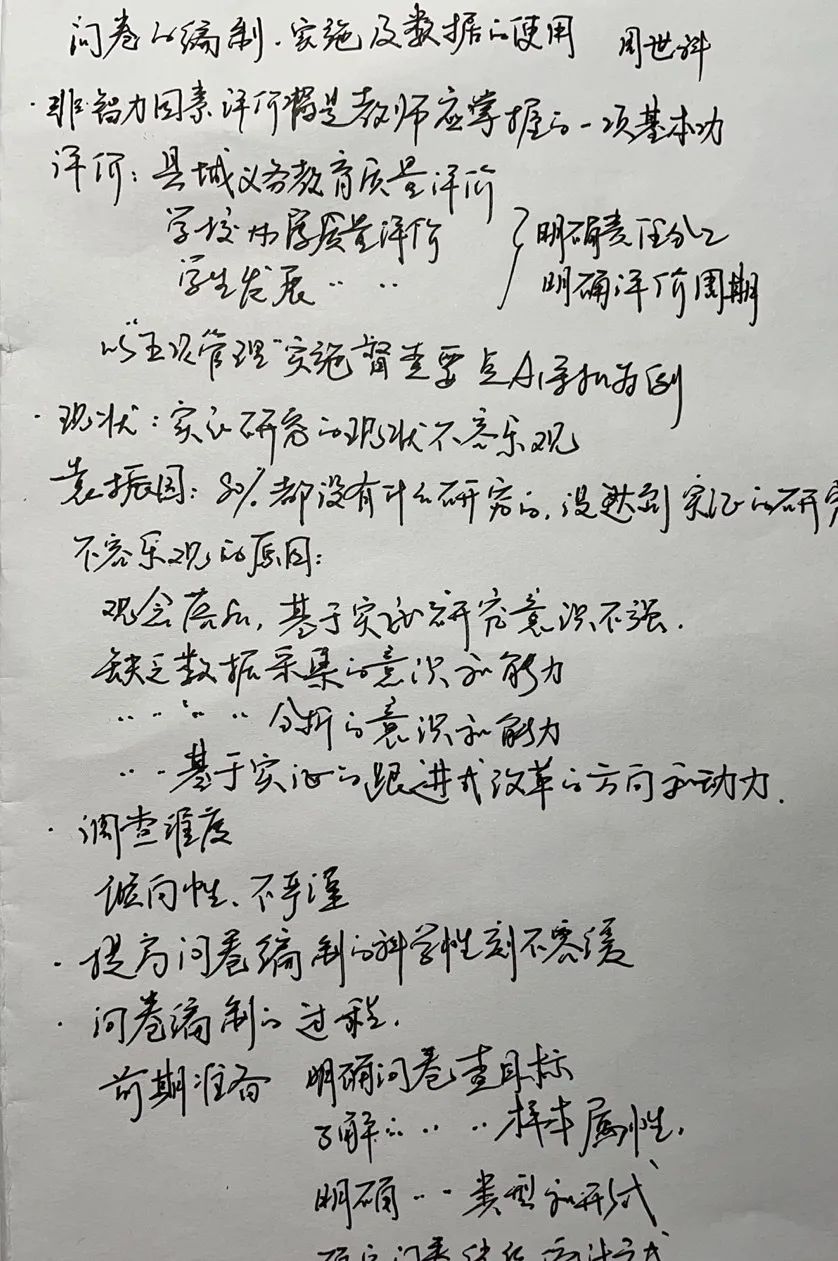 问卷的编制、实施及数据的使用 周世科
·非智力因素评价将是教师应掌握的一项基本功
评价:县域义务教育质量评价
学校办学质量评价
学生发展〃〃
明确责任分工
明确评价周期
以"五项管理"实施督查要点A学校为例
·现状:实证研究的现状不容乐观
袁振国:80%都没有什么研究的,没达到实证的研究
不容乐观的原因:
观念落后,基于实证研究意识不强.
缺乏数据采集的意识和能力
〃〃〃〃分析的意识和能力
〃〃基于实证的跟进式改革的方向和动力.
·调查难度
倾向性、不严谨
·提高问卷编制的科学性刻不容缓
·问卷编制的过程.
前期准备 明确问卷查目标
了解的〃〃样本属性.
明确〃〃类型和形式